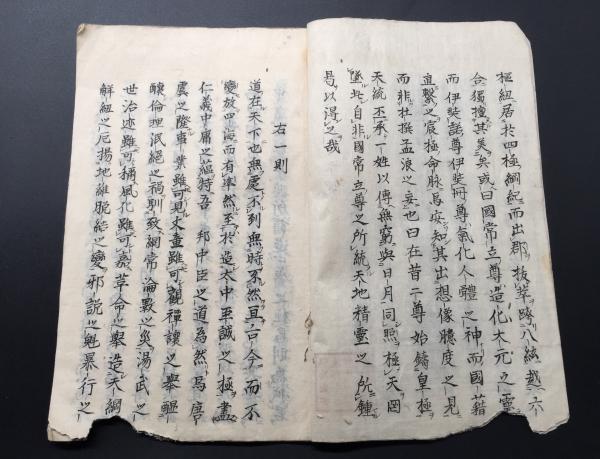 樞紐居於四極綱紀而出郡拔萃跨八紘越六
合獨擅其美矣或曰國常立尊造化太元之靈
而伊弉諾尊伊弉冊尊氣化人體之神而國籍
直繫之宸極命脉焉安知其出想像臆度之見
而非杜撰孟浪之妄也曰在昔二尊始鑄皇極
天統丕承一姓以傳無窮與日月同照極天罔
墜此自非國常立尊之所統天地精靈之所鍾
曷以得之哉
右一則
道在天下也無處不到無時不然亘古今而不
變放四海而有準然至於造大中至誠之極盡
仁義中庸之蘊特吾邦中臣之道為然焉唐
虞之隆事業雖可見文章雖可觀禪讓之舉漚
釀倫理泯絕之禍則致綱常淪斁之災湯武之
世治迹雖可稱風化雖可嘉革命之舉造天綱
解紐之厄揚地維脫乾之變邪說之魁暴行之